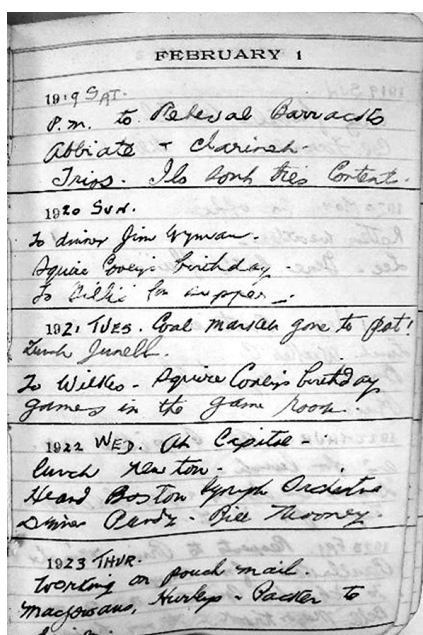 FEBRUARY 1
1919 SAT.
P.M. to Barracks
Abbiate + 
Trios. Ils sont très Contents.
1920 SUN.
To dinner Jim Wyman.
Squire Coveys birthday.
To Billie for supper.
1921 TUES. Coal market gone to pot!
Lunch
To Wilkes - Squire Coveys birthday
games in the game room.
1922 WED. At Capitol -
lunch Newton.
Heard Boston Symph Orchestra
Dinner Bill Mooney.
1923 THUR.
Working on pouch mail.
Macgowans, Hurleys - Packer to